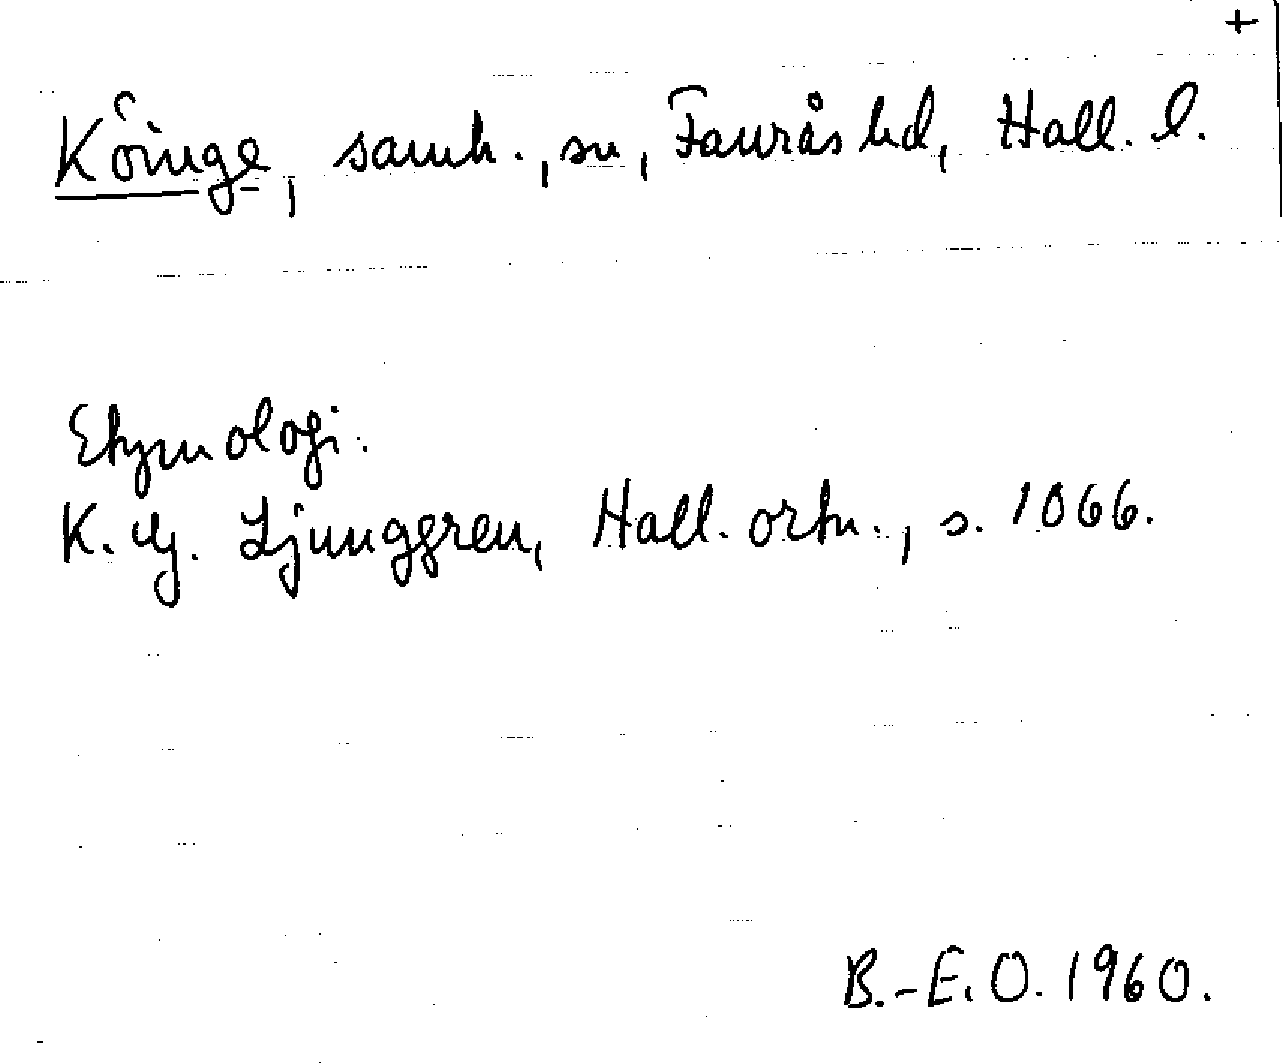 +
Köinge, samh., sn, Faurås hd, Hall. l.
Etymologi:
K. G. Ljunggren, Hall. ortn., s. 1066.
B.-E. O. 1960.